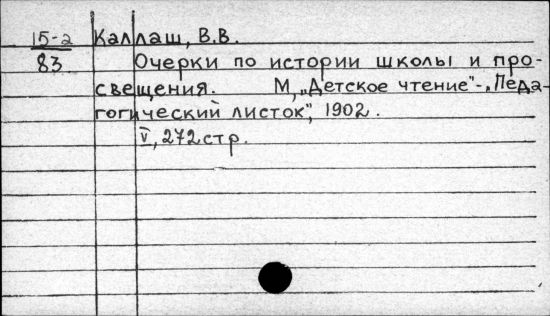 15-2 Каллаш, В.В.
83 Очерки по истории школы и про-
свещения. М, „Детское чтение"-„Педа-
гогический листок", 1902.
V, 272 стр.